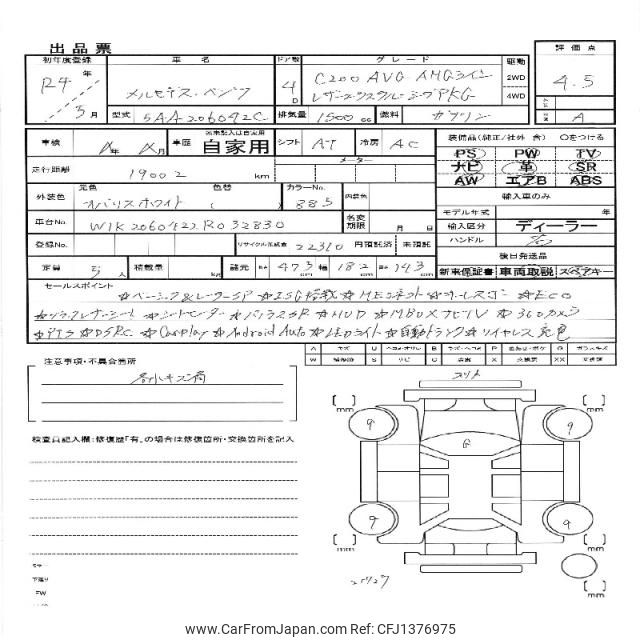 出品票
初年度登録 車名 ドア数 グレード 駆動 評価点
R4年 5月 メルセデス・ベンツ 4D C200 AVG AMGライン 2WD 4.5
レザーエクスクルーシブPKG 4WD
型式 5AA-206042C 排気量 1500cc 燃料 ガソリン A
車検 年 月 車歴 名無記入は自家用 自家用 シフト AT 冷房 AC 装備品(純正/社外 含) ○をつける
PS PW TV
走行距離 19002 km メーター ナビ 革 SR
AW エアB ABS
外装色 元色 オパリスホワイト 色替 ( ) カラーNo. 885 内装色 輸入車のみ
モデル年式 年
車台No. W1K2060422R032830 名変期限 月 日 輸入区分 ディーラー
登録No. リサイクル預託金 22310 円預託済 未預託 ハンドル 右
後日発送品
定員 5人 積載量 kg 諸元 長さ 473 幅 182 高さ 143 cm 新車保証書 車両取説 スペアキー
セールスポイント
☆ベーシック&レーダーSP ☆ISG搭載 ☆MEコネクト ☆キーレスゴー ☆ECO
☆ブラックレザーシート ☆シートヒーター ☆パノラマSR ☆HUD ☆MBUXナビTV ☆360カメラ
☆PTS ☆DSRC ☆Carplay ☆Android Auto ☆LEDライト ☆自動トランク ☆ワイヤレス充電
注意事項・不具合箇所
各小キズ有
検査員記入欄:修復歴「有」の場合は修復箇所・交換箇所を記入
[ ] mm [ ] mm
9 9
G
9 9
[ ] mm [ ] mm
[ ] mm
CarFromJapan | CarFromJapan.com | Ref: CFJ1376975